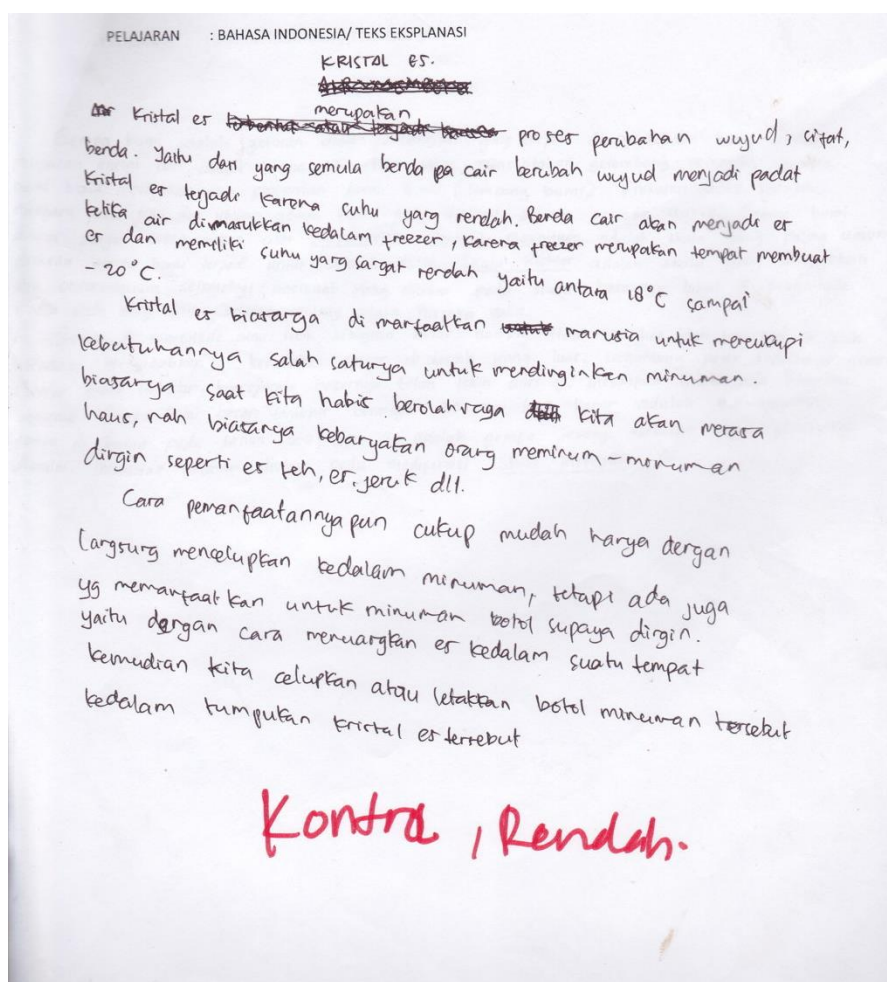 PELAJARAN : BAHASA INDONESIA/ TEKS EKSPLANASI
KRISTAL ES.
merupakan
Kristal es proses perubahan wujud, sifat,
benda. Yaitu dari yang semula benda pa cair berubah wujud menjadi padat
Kristal es terjadi karena suhu yang rendah. Benda cair akan menjadi es
ketika air dimasukkan kedalam freezer, karena freezer merupakan tempat membuat
es dan memiliki suhu yang sangat rendah yaitu antara 18°C sampai
-20°C.
Kristal es biasanya di manfaatkan manusia untuk mencukupi
kebutuhannya salah satunya untuk mendinginkan minuman.
biasanya saat kita habis berolahraga kita akan merasa
haus, nah biasanya kebanyakan orang meminum-minuman
dingin seperti es teh, es jeruk dll.
Cara pemanfaatannya pun cukup mudah hanya dengan
langsung mencelupkan kedalam minuman, tetapi ada juga
yg memanfaatkan untuk minuman botol supaya dingin.
yaitu dengan cara menuangkan es kedalam suatu tempat
kemudian kita celupkan atau letakkan botol minuman tersebut
kedalam tumpukan kristal es tersebut
Kontra, Rendah.